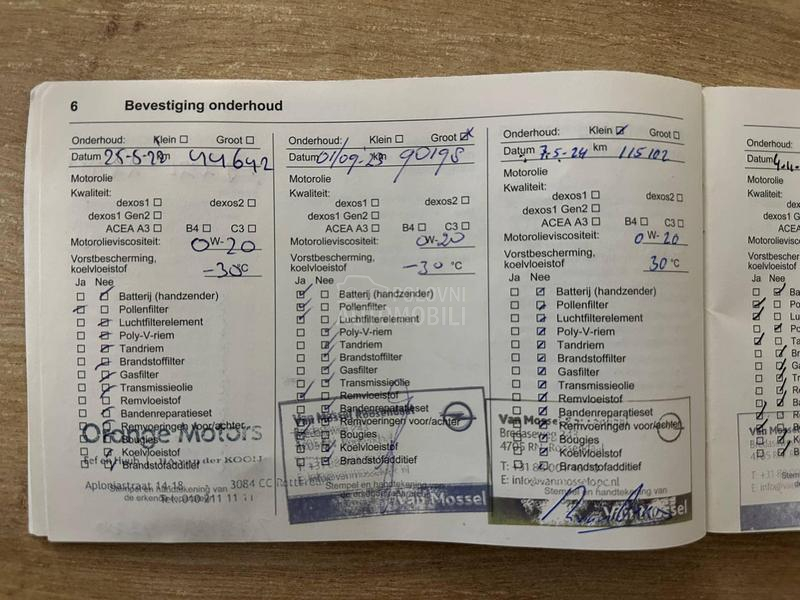 6 Bevestiging onderhoud
Onderhoud: Klein Groot
Datum 25-5-22 km 44642
Motorolie
Kwaliteit:
dexos1 dexos2
dexos1 Gen2
ACEA A3 B4 C3
Motorolieviscositeit: 0W-20
Vorstbescherming,
koelvloeistof -30°C
Ja Nee
Batterij (handzender)
Pollenfilter
Luchtfilterelement
Poly-V-riem
Tandriem
Brandstoffilter
Gasfilter
Transmissieolie
Remvloeistof
Bandenreparatieset
Remvoeringen voor/achter
Bougies
Koelvloeistof
Brandstofadditief
Motors
Aploniastraat 14-18 3084 CC Rotterdam
Stempel en handtekening van
de erkende
Tel. 010 211 11 11
Onderhoud: Klein Groot
Datum 01/09-23 km 90198
Motorolie
Kwaliteit:
dexos1 dexos2
dexos1 Gen2
ACEA A3 B4 C3
Motorolieviscositeit: 0W-20
Vorstbescherming,
koelvloeistof -30 °C
Ja Nee
Batterij (handzender)
Pollenfilter
Luchtfilterelement
Poly-V-riem
Tandriem
Brandstoffilter
Gasfilter
Transmissieolie
Remvloeistof
Bandenreparatieset
Remvoeringen voor/achter
Bougies
Koelvloeistof
Brandstofadditief
Van Mossel Roosendaal
Stempel en handtekening van
Van Mossel
Onderhoud: Klein Groot
Datum 7-5-24 km 115102
Motorolie
Kwaliteit:
dexos1 dexos2
dexos1 Gen2
ACEA A3 B4 C3
Motorolieviscositeit: 0W-20
Vorstbescherming,
koelvloeistof 30 °C
Ja Nee
Batterij (handzender)
Pollenfilter
Luchtfilterelement
Poly-V-riem
Tandriem
Brandstoffilter
Gasfilter
Transmissieolie
Remvloeistof
Bandenreparatieset
Remvoeringen voor/achter
Bougies
Koelvloeistof
Brandstofadditief
Van Mossel
4705 R
E: info@vanmosselopc.nl
Stempel en handtekening van
Van Mossel
Onderh
Datum
Motorolie
Kwaliteit:
dexos
ACE
Motorolievis
Vorstbesche
koelvloeistof
Ja Nee